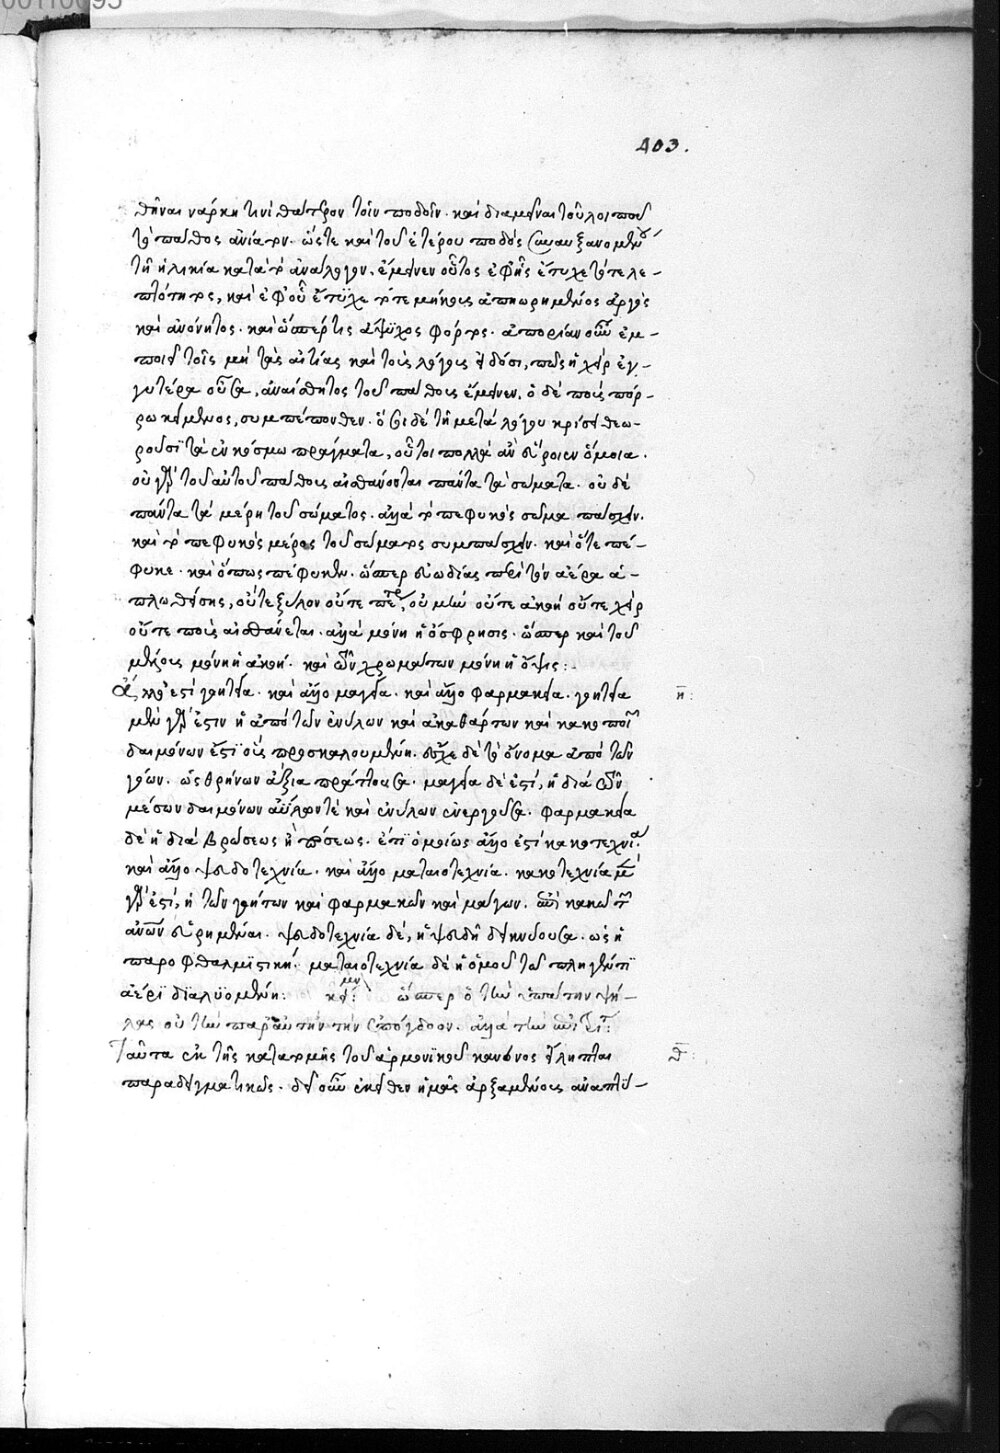 403.
θῆναι νάρκη τινὶ θάτερον τοῖν ποδοῖν. καὶ διαμεῖναι τοῦ λοιποῦ
τὸ πάθος ἀνίατον. ὥστε καὶ τοῦ ἑτέρου ποδὸς συναυξανομένου
τῇ ἡλικίᾳ κατὰ τὸ ἀνάλογον, ἔμεινεν οὗτος ἐφ' ἧς ἔτυχε τότε λε-
πτότητος, καὶ ἐφ' οὗ ἔτυχε τότε μήκους ἀπηωρημένος ἀργὸς
καὶ ἀνόνητος. καὶ ὥσπέρ τις ἄψυχος φόρτος. ἀπορίαν οὖν ἐμ-
ποιεῖ τοῖς μὴ τὰς αἰτίας καὶ τοὺς λόγους εἰδόσι, πῶς ἡ χεὶρ ἐγ-
γυτέρα οὖσα, ἀναίσθητος τοῦ πάθους ἔμεινεν, ὁ δὲ ποὺς πόρ-
ρω κείμενος, συμπέπονθεν. ὅσοι δὲ τῇ μετὰ λόγου κρίσει θεω-
ροῦσι τὰ ἐν κόσμῳ πράγματα, οὗτοι πολλὰ ἂν εὕροιεν ὅμοια.
οὐ γὰρ τοῦ αὐτοῦ πάθους αἰσθάνονται πάντα τὰ σώματα. οὐδὲ
πάντα τὰ μέρη τοῦ σώματος. ἀλλὰ τὸ πεφυκὸς σῶμα πάσχειν.
καὶ τὸ πεφυκὸς μέρος τοῦ σώματος συμπάσχειν. καὶ ὅτε πέ-
φυκε. καὶ ὅπως πέφυκεν. ὥσπερ εὐωδίας περὶ τὸν ἀέρα ἁ-
πλωθείσης, οὔτε ξύλον οὔτε πέτρα, οὐ μὴν οὔτε ἀκοὴ οὔτε χεὶρ
οὔτε ποὺς αἰσθάνεται. ἀλλὰ μόνη ἡ ὄσφρησις. ὥσπερ καὶ τοῦ
μέλους μόνη ἡ ἀκοή. καὶ τῶν χρωμάτων μόνη ἡ ὄψις:
Ἄλλο ἐστὶ γοητεία. καὶ ἄλλο μαγεία. καὶ ἄλλο φαρμακεία. γοητεία
η:
μὲν γάρ ἐστιν ἡ ἀπὸ τῶν ἐνύλων καὶ ἀκαθάρτων καὶ κακοποιῶν
δαιμόνων ἐπὶ οὓς προσκαλουμένη. ἔσχε δὲ τὸ ὄνομα ἀπὸ τῶν
γόων. ὡς θρήνων ἄξια πράττουσα. μαγεία δὲ ἐστί, ἡ διὰ τῶν
μέσων δαιμόνων ἀΰλων τὲ καὶ ἐνύλων ἐνεργοῦσα. φαρμακεία
δὲ ἡ διὰ βρώσεως ἢ πόσεως. ἔτι ὁμοίως ἄλλο ἐστὶ κακοτεχνία.
καὶ ἄλλο ψευδοτεχνία. καὶ ἄλλο ματαιοτεχνία. κακοτεχνία μὲν
γάρ ἐστί, ἡ τῶν γοήτων καὶ φαρμακῶν καὶ μάγων. ἐπὶ κακῷ τῶν
ἀνθρώπων εὑρημέναι. ψευδοτεχνία δὲ, ἡ ψευδῆ δεικνύουσα. ὡς ἡ
παροφθαλμιστική. ματαιοτεχνία δὲ ἡ ὁμοῦ τῷ πληγέντι
ἀέρι διαλυομένη: κείμενον: ὥσπερ ὁ τὴν ὑπάτην ψή-
λας οὐ τὴν παρ' αὐτὴν τὴν ἐπόγδοον. ἀλλὰ τὴν ἐπίτριτον
Ταῦτα ἐκ τῆς κατατομῆς τοῦ ἁρμονικοῦ κανόνος εἴληπται
θ:
παραδειγματικῶς. δεῖ οὖν ἐκεῖθεν ἡμᾶς ἀρξαμένους ἀναπτύ-